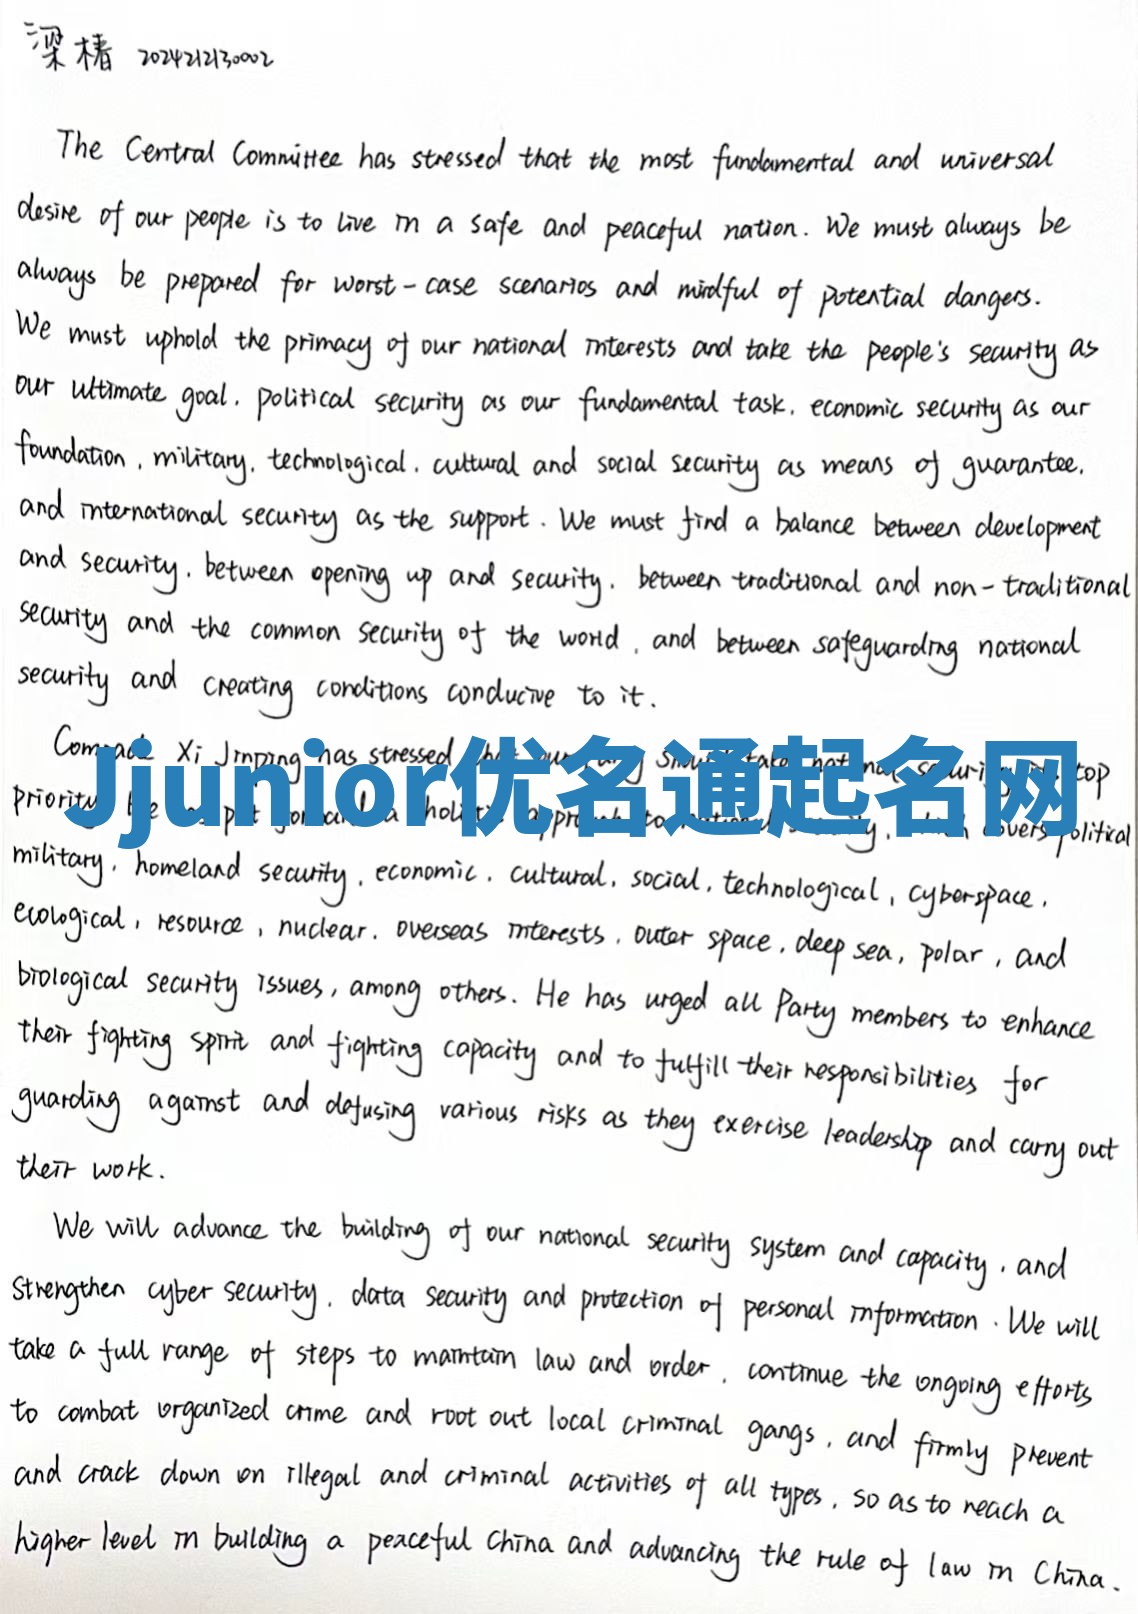 梁椿 2024212130002
The Central Committee has stressed that the most fundamental and universal
desire of our people is to live in a safe and peaceful nation. We must always be
always be prepared for worst-case scenarios and mindful of potential dangers.
We must uphold the primacy of our national interests and take the people's security as
our ultimate goal, political security as our fundamental task, economic security as our
foundation, military, technological, cultural and social security as means of guarantee,
and international security as the support. We must find a balance between development
and security, between opening up and security, between traditional and non-traditional
security and the common security of the world, and between safeguarding national
security and creating conditions conducive to it.
Xi Jinping has stressed top
Jjunior优名通起名网
priority a to political
military, homeland security, economic, cultural, social, technological, cyberspace,
ecological, resource, nuclear, overseas interests, outer space, deep sea, polar, and
biological security issues, among others. He has urged all Party members to enhance
their fighting spirit and fighting capacity and to fulfill their responsibilities for
guarding against and defusing various risks as they exercise leadership and carry out
their work.
We will advance the building of our national security system and capacity, and
strengthen cyber security, data security and protection of personal information. We will
take a full range of steps to maintain law and order, continue the ongoing efforts
to combat organized crime and root out local criminal gangs, and firmly prevent
and crack down on illegal and criminal activities of all types, so as to reach a
higher level in building a peaceful China and advancing the rule of law in China.